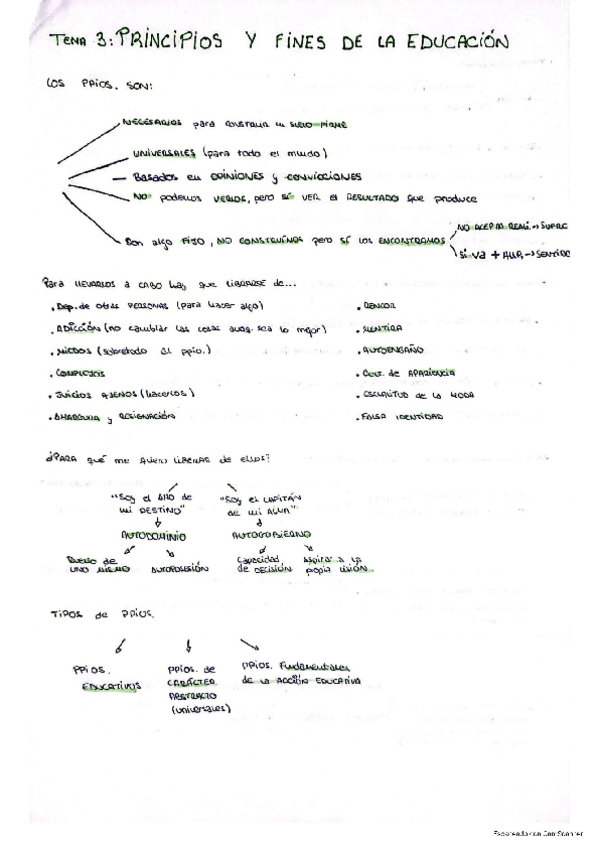 TEMA 3: PRINCIPIOS Y FINES DE LA EDUCACIÓN
LOS PPIOS. SON:
NECESARIOS para construir un
UNIVERSALES (para todo el mundo)
Basados en OPINIONES y CONVICCIONES
NO podemos VERLOS, pero sí VER el RESULTADO que produce
Son algo FIJO, NO CONSTRUIMOS pero sí los ENCONTRAMOS
NO ACEPTA
SI VA +
Para llevarlos a cabo hay que liberarse de...
. Dep. de otras PERSONAS (para hacer algo)
. ADICCIÓN (no cambiar las cosas aunq. sea lo mejor)
. MIEDOS (sobretodo al ppio.)
. COMPLEJOS
. JUICIOS AJENOS (hacerlos)
. AMARGURA y RESIGNACIÓN
. RENCOR
. MENTIRA
. AUTOENGAÑO
. Cult. de APARIENCIA
. ESCLAVITUD de la MODA
. FALSA IDENTIDAD
¿PARA qué me quiero LIBERAR de ellos?
"Soy el AMO de
mi DESTINO"
"Soy el CAPITÁN
DE mi ALMA"
AUTODOMINIO
AUTOGOBIERNO
Dueño de
UNO MISMO
AUTOPOSESIÓN
Capacidad
de DECISIÓN
Aspirar a la
propia
TIPOS de PPIOS.
PPIOS.
EDUCATIVOS
PPIOS. de
CARÁCTER
ABSTRACTO
(universales)
PPIOS. Fundamentales
de la ACCIÓN EDUCATIVA
Escaneado con CamScanner